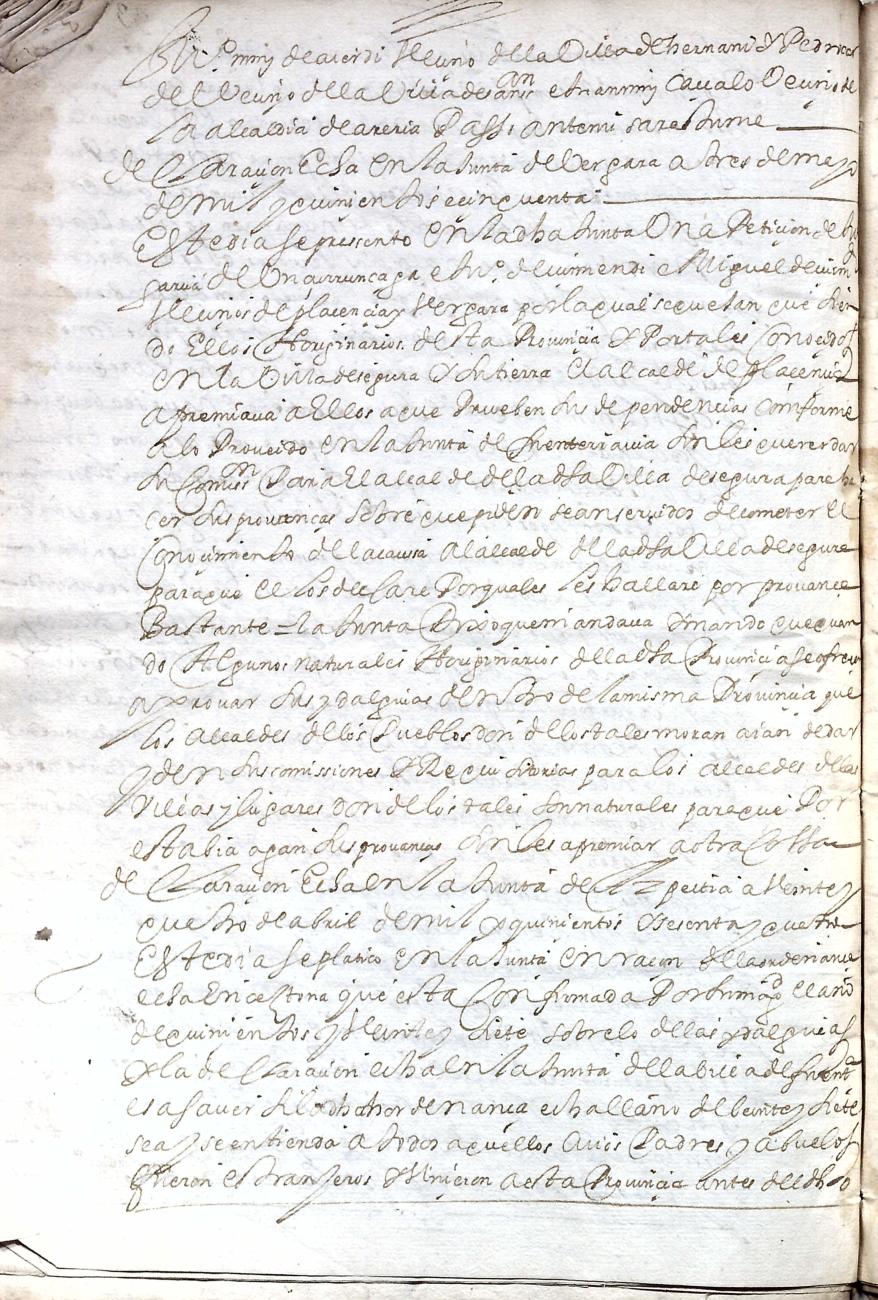 mrn de averdi Veuno della Villa de hernani Y Pedro
del Veuno della Villa de san san e Juan mrn Cavalo Veuno de
la alcaldia de areria Passo ante mi sarastume
declaraçion Echa En la Junta de Vergara a tres de mayo
de mill y quinientos e cinquenta
Este dia se pressento En la dha Junta Una Petiçion de
garçia de Unçurrunçaga e Jn.º de vimendi e Miguel de vim
Veçinos de plaçençia y Vergara por la qual se quexan que sien
do Ellos Horiginarios desta Provinçia Y Por tales Conoçidos
en la Villa de segura Y su tierra El alcalde de plaçençia
apremiava a Ellos a que Prueben sus dependençias Comforme
a lo Proveido en la Junta de fuenterravia sin les querer dar
su Comiss.on Para El alcalde de lla dha Villa de segura para ha
çer sus provanças sobre que piden sean servidos de cometer el
Conoçimiento de lla caussa al alcalde de lla dha Villa de segura
para que el los declare Por quales les hallare por provança
Bastante = la Junta Dixo que mandava Y mando que quan
do Algunos naturales Y horiginarios de lla dha Provinçia se ofreçen
a provar sus ydalguias dentro de la misma Provinçia que
los alcaldes de llos Pueblos don de llos tales moran aian de dar
y den sus comissiones Y Requisitorias para los alcaldes de llas
Villas y lugares don de llos tales son naturales para que Por
esta bia agan sus provanças sin les apremiar a otra Cossa
declaraçion Echa en la Junta de Azpeitia a Veinte y
quatro de abril de mill y quinientos Y sesenta y quatro
Este dia se platico En la Junta en raçon de lla ordenança
echa En Cestona que esta Confirmada Por su mag.d el año
de quinientos y Veinte y siete sobre lo de llas ydalguias
Y la declaraçion echa en la Junta de lla billa de fuent.ª
es a saver si la dha hordenança echa el año de beinte y siete
sea y se entienda a todos aquellos cuios Padres y abuelos
fueron estranjeros Y Vinieron a esta Provinçia antes del dho